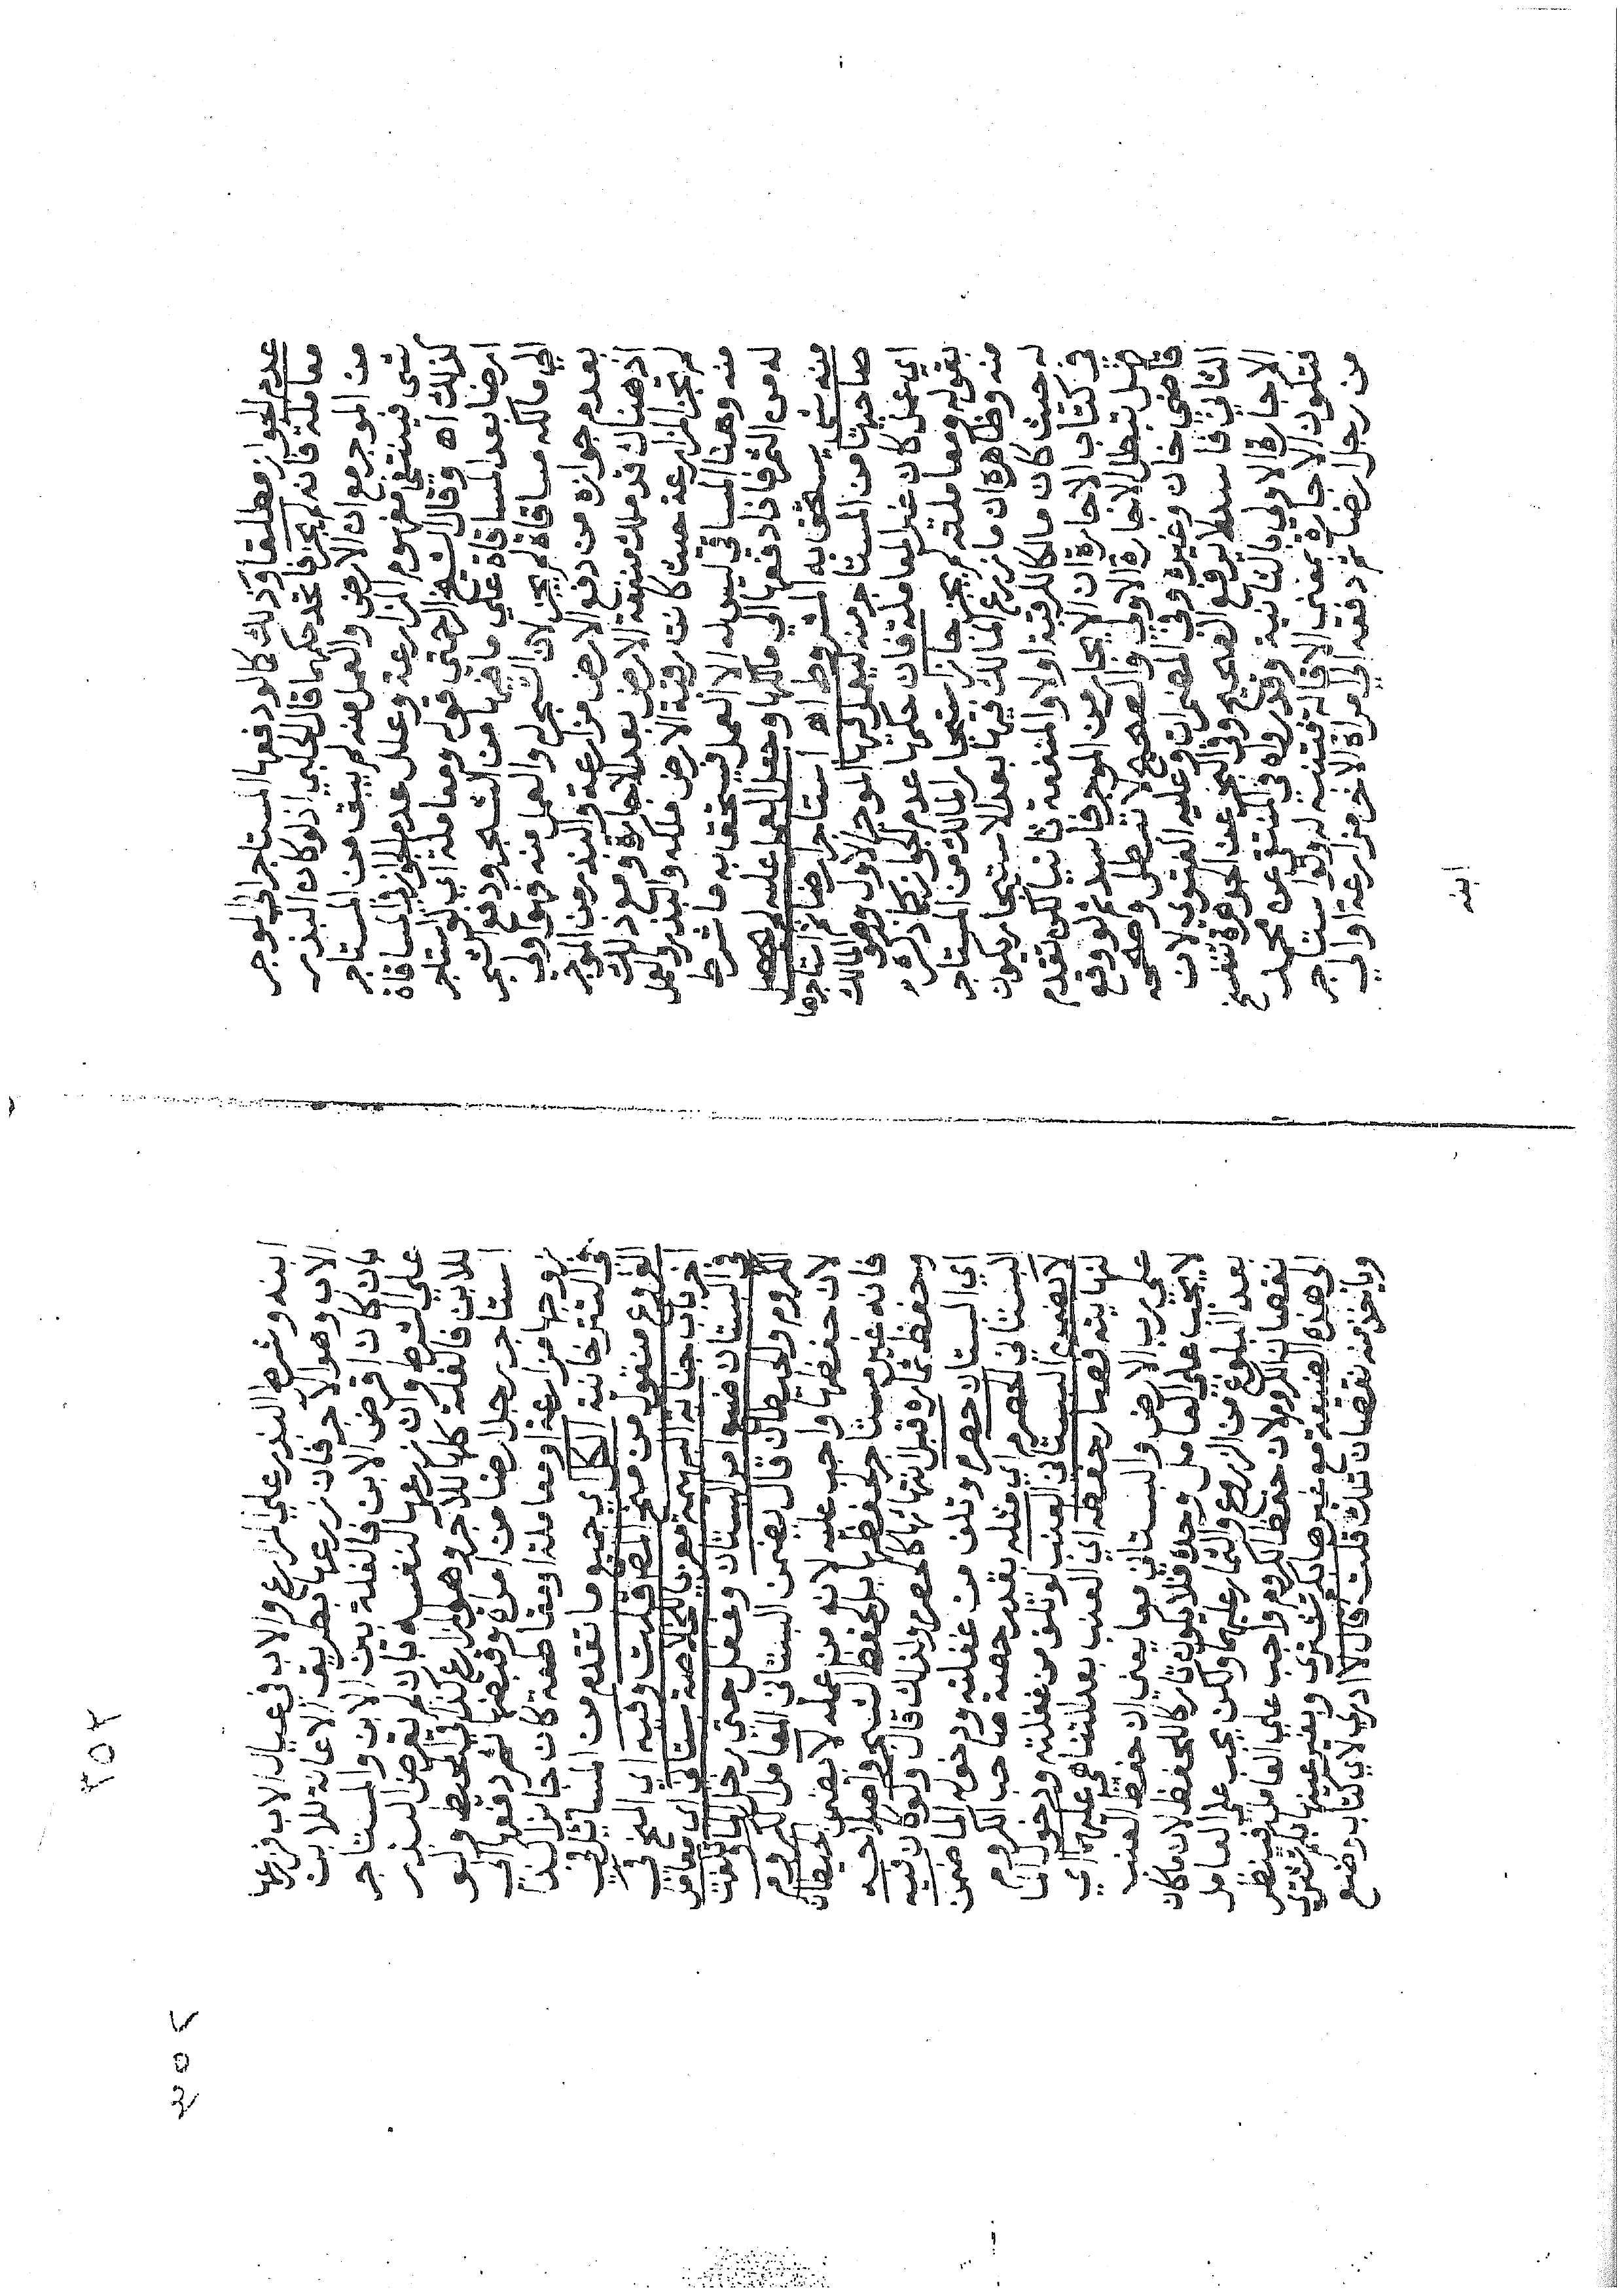 عدم الجواز مطلقا وذلك كما لو دفعها المستاجر الي الموجر
معاملة فانه لم يجز فاتحد حكمها قال الحلبي اذ لو كان البذر
من الموجر مع ان الارض والعمل منه لم يبق من المستاجر
شي فينتفي مفهوم المزارعة وعلل عدم الجواز في المساقاة
كذلك اه وقال الشيخ الرحمتي قوله ومعاملة اي لو استاجر
ارضا بعد المساقاة علي ما فيها من الشجر ودفع الشجر
الي مالكه مساقاة لم يجز لان الشجر والعمل منه فهو اولي
بعدم جوازه من دفع الارض مزارعة والبذر من الموجر
اذ هناك قد ملك منفعة الارض بعد الاجارة ومع ذلك
لم تجز المزارعة حيث كانت رقبة الارض ملكه والبذر والعمل
منه وهنا المساقي ليس له الا العمل فيستحق به ما شرط
له من الثمر فاذا دفعها الي مالكها وجعل العمل عليه لم يحصل
منه شي يستحق به المشروط اه استاجر ارضا ثم استاجر
صاحبها من المستاجر منه ليعمل فيها الموجر الاول وهو المالك
اي عمل كان غير المعاملة فان حكمها عدم الجواز كما ذكره
بقوله ومعاملته لم يجز جاز استيجار المالك من المستاجر
منه وظاهره ان ما زرع المالك فيها بعد الاستيجار يكون
له حيث كان مالكا للرقبة اولا والمنفعة ثانيا لكن تقدم
في كتاب الاجارة ان الايجار من الموجر فاسد ثم لو وقع
هل تبطل الاجارة الاولي والصحيح لا تبطل وصححه
قاضي خان وغيره وفي المضمرات وعليه الفتوي لان
الثاني فاسد لا يرفع الصحيح وفي البحر عن الجوهرة تنفسخ
الاجارة الاولي بالثانية وقد رواه في المنتقي عن محمد
فتكون الاجارة بمعني الاقالة فتنبه له ولو استاجر
من رجل ارضا ثم دفعه الي امراة الاخر مزارعة او الي
ابنه
ابنه وشرط البذر علي المزارع والاب في عيال الاب فزرعها
الاب وهو الآجر فان زرعها بطريق الاعانة للابن
بان كان اقرض الابن فالغلة بين الابن والمستاجر
علي الشرط وان زرعها لنفسه بان لم يقرض البذر
للابن فالغلة كلها للآجر وهو المزارع كذا في المحيط ولو
استاجر رجل ارضا من امراة وقبضها ثم دفعها الي
زوجها مزارعة او معاملة او مقاطعة كان جائزا كذا
في التترخانية الكل اي جميع ما تقدم من المسائل في
الفروع منقول من منح المصنف قلت وفيه اي المنح في
آخر باب جناية البهيمة معزيا للخلاصة بستاني اي معامل
في البستان ضيع امر البستان وغفل حتي دخل الماء وتلفت
الكروم والحيطان قال يضمن البستاني المعامل الكروم
لان حفظها واجب عليه لانه من عمله لا يضمن الحيطان
فانه غير مستاجر لحفظها بل لحفظ الشجر واصلاحه
وحفظ ثماره قبل انتهائها كالحصرم ولذلك قال ولو كان فيه
اي البستان حصرم وتلف من غفلته ودخوله الماء ضمن
البستاني الحصرم اي مثله بقدر حصة صاحب الكروم
لا يضمن البستاني العنب لو تلف من غفلته ودخول الماء
لنهايته وصار حفظه اي العنب بعد التناهي عليهما اي
علي رب الارض والبستاني معا يعني ان حفظ العنب
لا يجب علي العامل وحده فلا يكون تاركا للحفظ لان ما كان
بعد البلوغ من الزروع والثمار عليهما ولكن يجب علي العامل
نقصان الكروم لان حفظ الكروم واجب علي العامل فينظر
الي هذه الضيعة مع غير هالك تشتري وبغير عيبها بكم تشتري
وياخذ منه نقصان ذلك قلت قال لا ادري لاي كتاب وضع
٣٥٢
٣٥٢